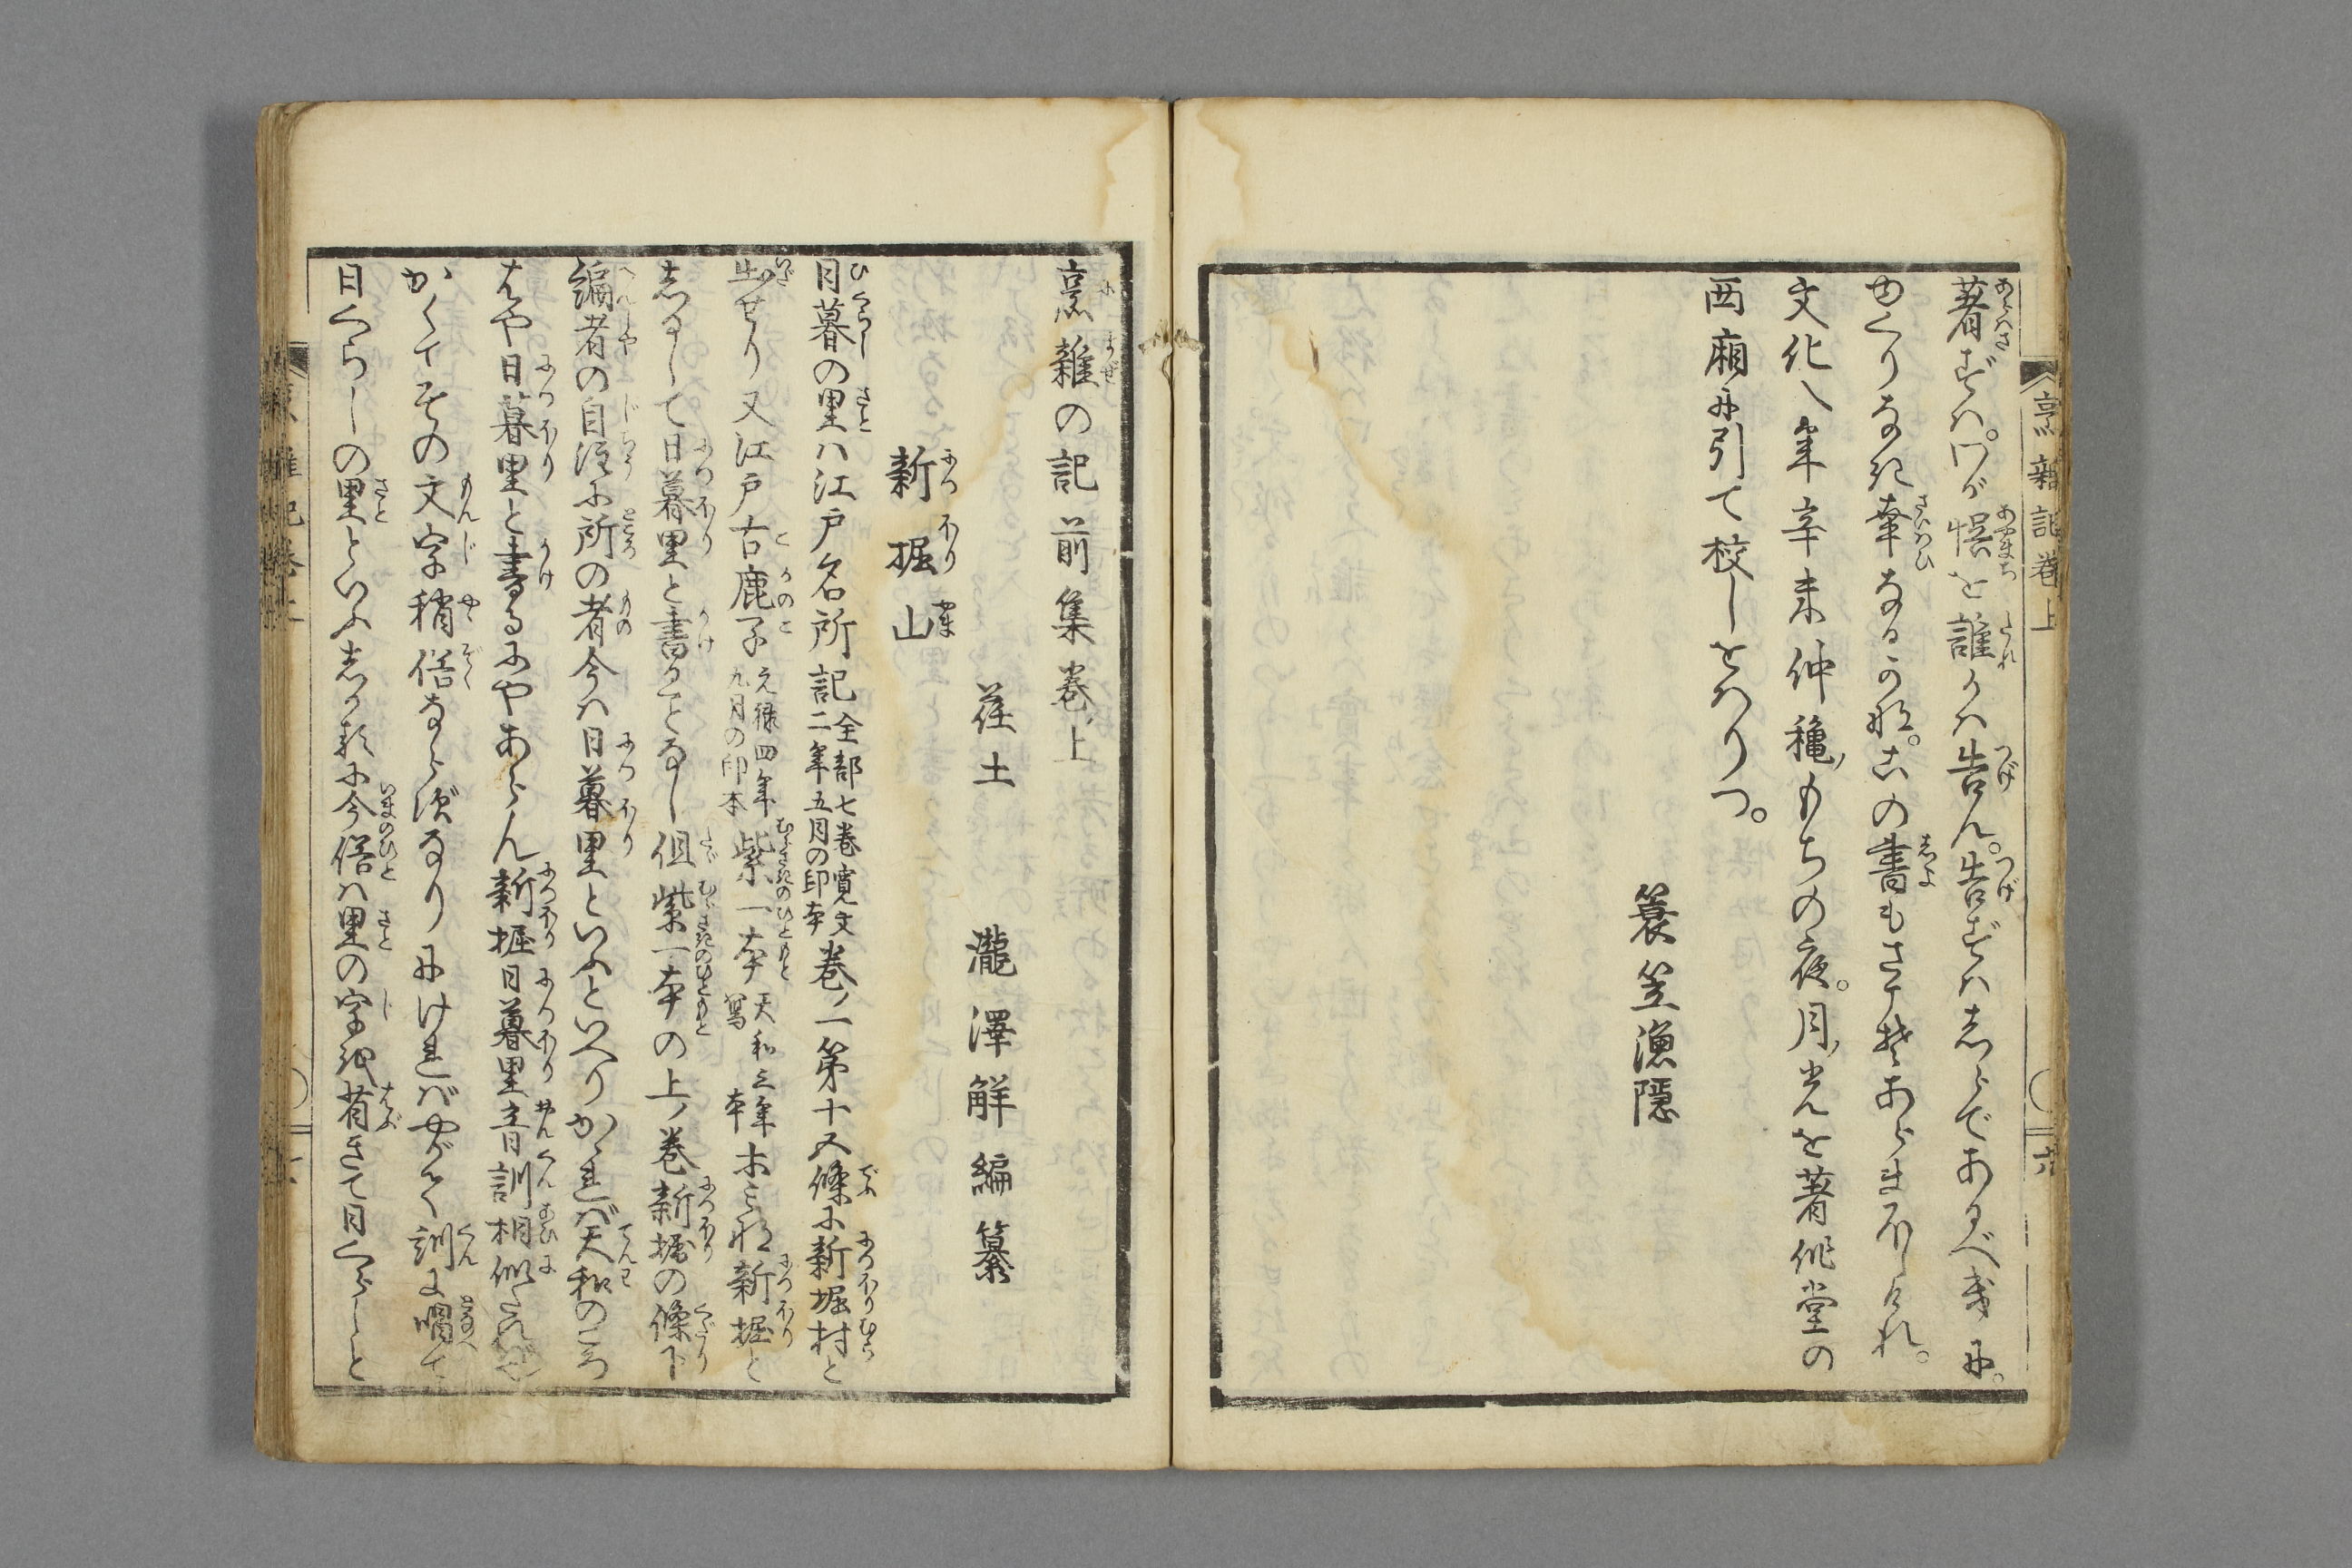 烹雜記巻上
著さずは。わが悞を誰かは告ん。告ずはしらであるべきに。
めぐりなき幸なるかな。この書もさてぞあらまほしけれ。
文化八年辛未仲穐もちの夜。月光を著作堂の
西廂に引て校しをはりつ。
簑笠漁隱
烹雜の記前集巻上
荏土　瀧澤解編纂
新堀山
日暮の里は江戸名所記全部七巻寛文二年五月の印本巻ノ一第十五條に新堀村と
出せり又江戸古鹿子元禄四年九月の印本紫一本天和三年寫本木にみな新堀と
しるして日暮里と書ることなし但紫一本の上ノ巻新堀の條下
編者の自注に所の者今は日暮里といふといへりかゝれば天和のころ
はや日暮里と書るにやあらん新堀日暮里音訓相似たればや
かくてその文字稍俗ならずなりにければやがて訓に唱て
日くらしの里といふしかるに今俗は里の字を省きて日くらしと